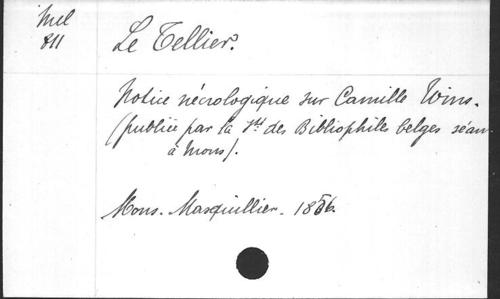 Mel
811
Le Tellier.
Notice nécrologique sur Camille Wins.
(publiée par la Sté des Bibliophiles belges séan-
à Mons).
Mons. Masquillier. 1856.